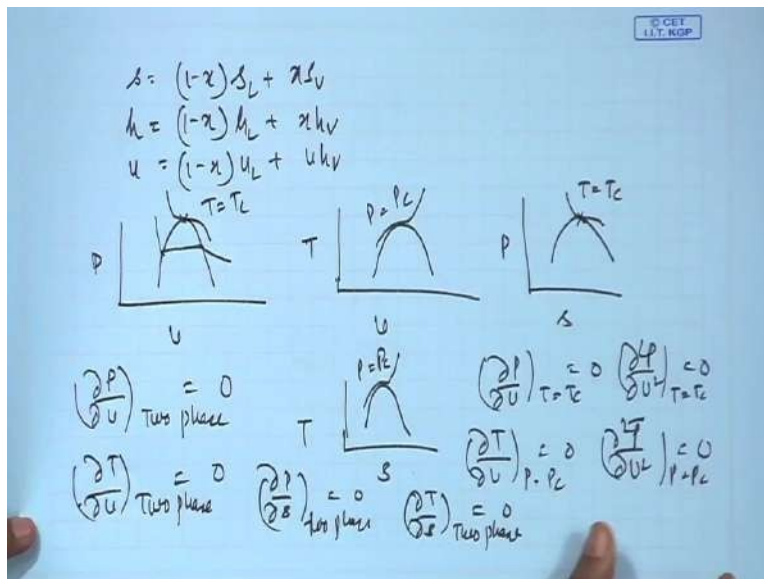 © CET
I.I.T. KGP
s = (1-x) s_L + x s_v
h = (1-x) h_L + x h_v
u = (1-x) u_L + u h_v
T = T_c
P
v
P = P_c
T
v
T = T_c
P
s
P = P_c
T
s
(∂P/∂v)_{Two phase} = 0
(∂T/∂v)_{Two phase} = 0
(∂P/∂s)_{two phase} = 0
(∂T/∂s)_{Two phase} = 0
(∂P/∂v)_{T=T_c} = 0 (∂²P/∂v²)_{T=T_c} = 0
(∂T/∂v)_{P=P_c} = 0 (∂²T/∂v²)_{P=P_c} = 0